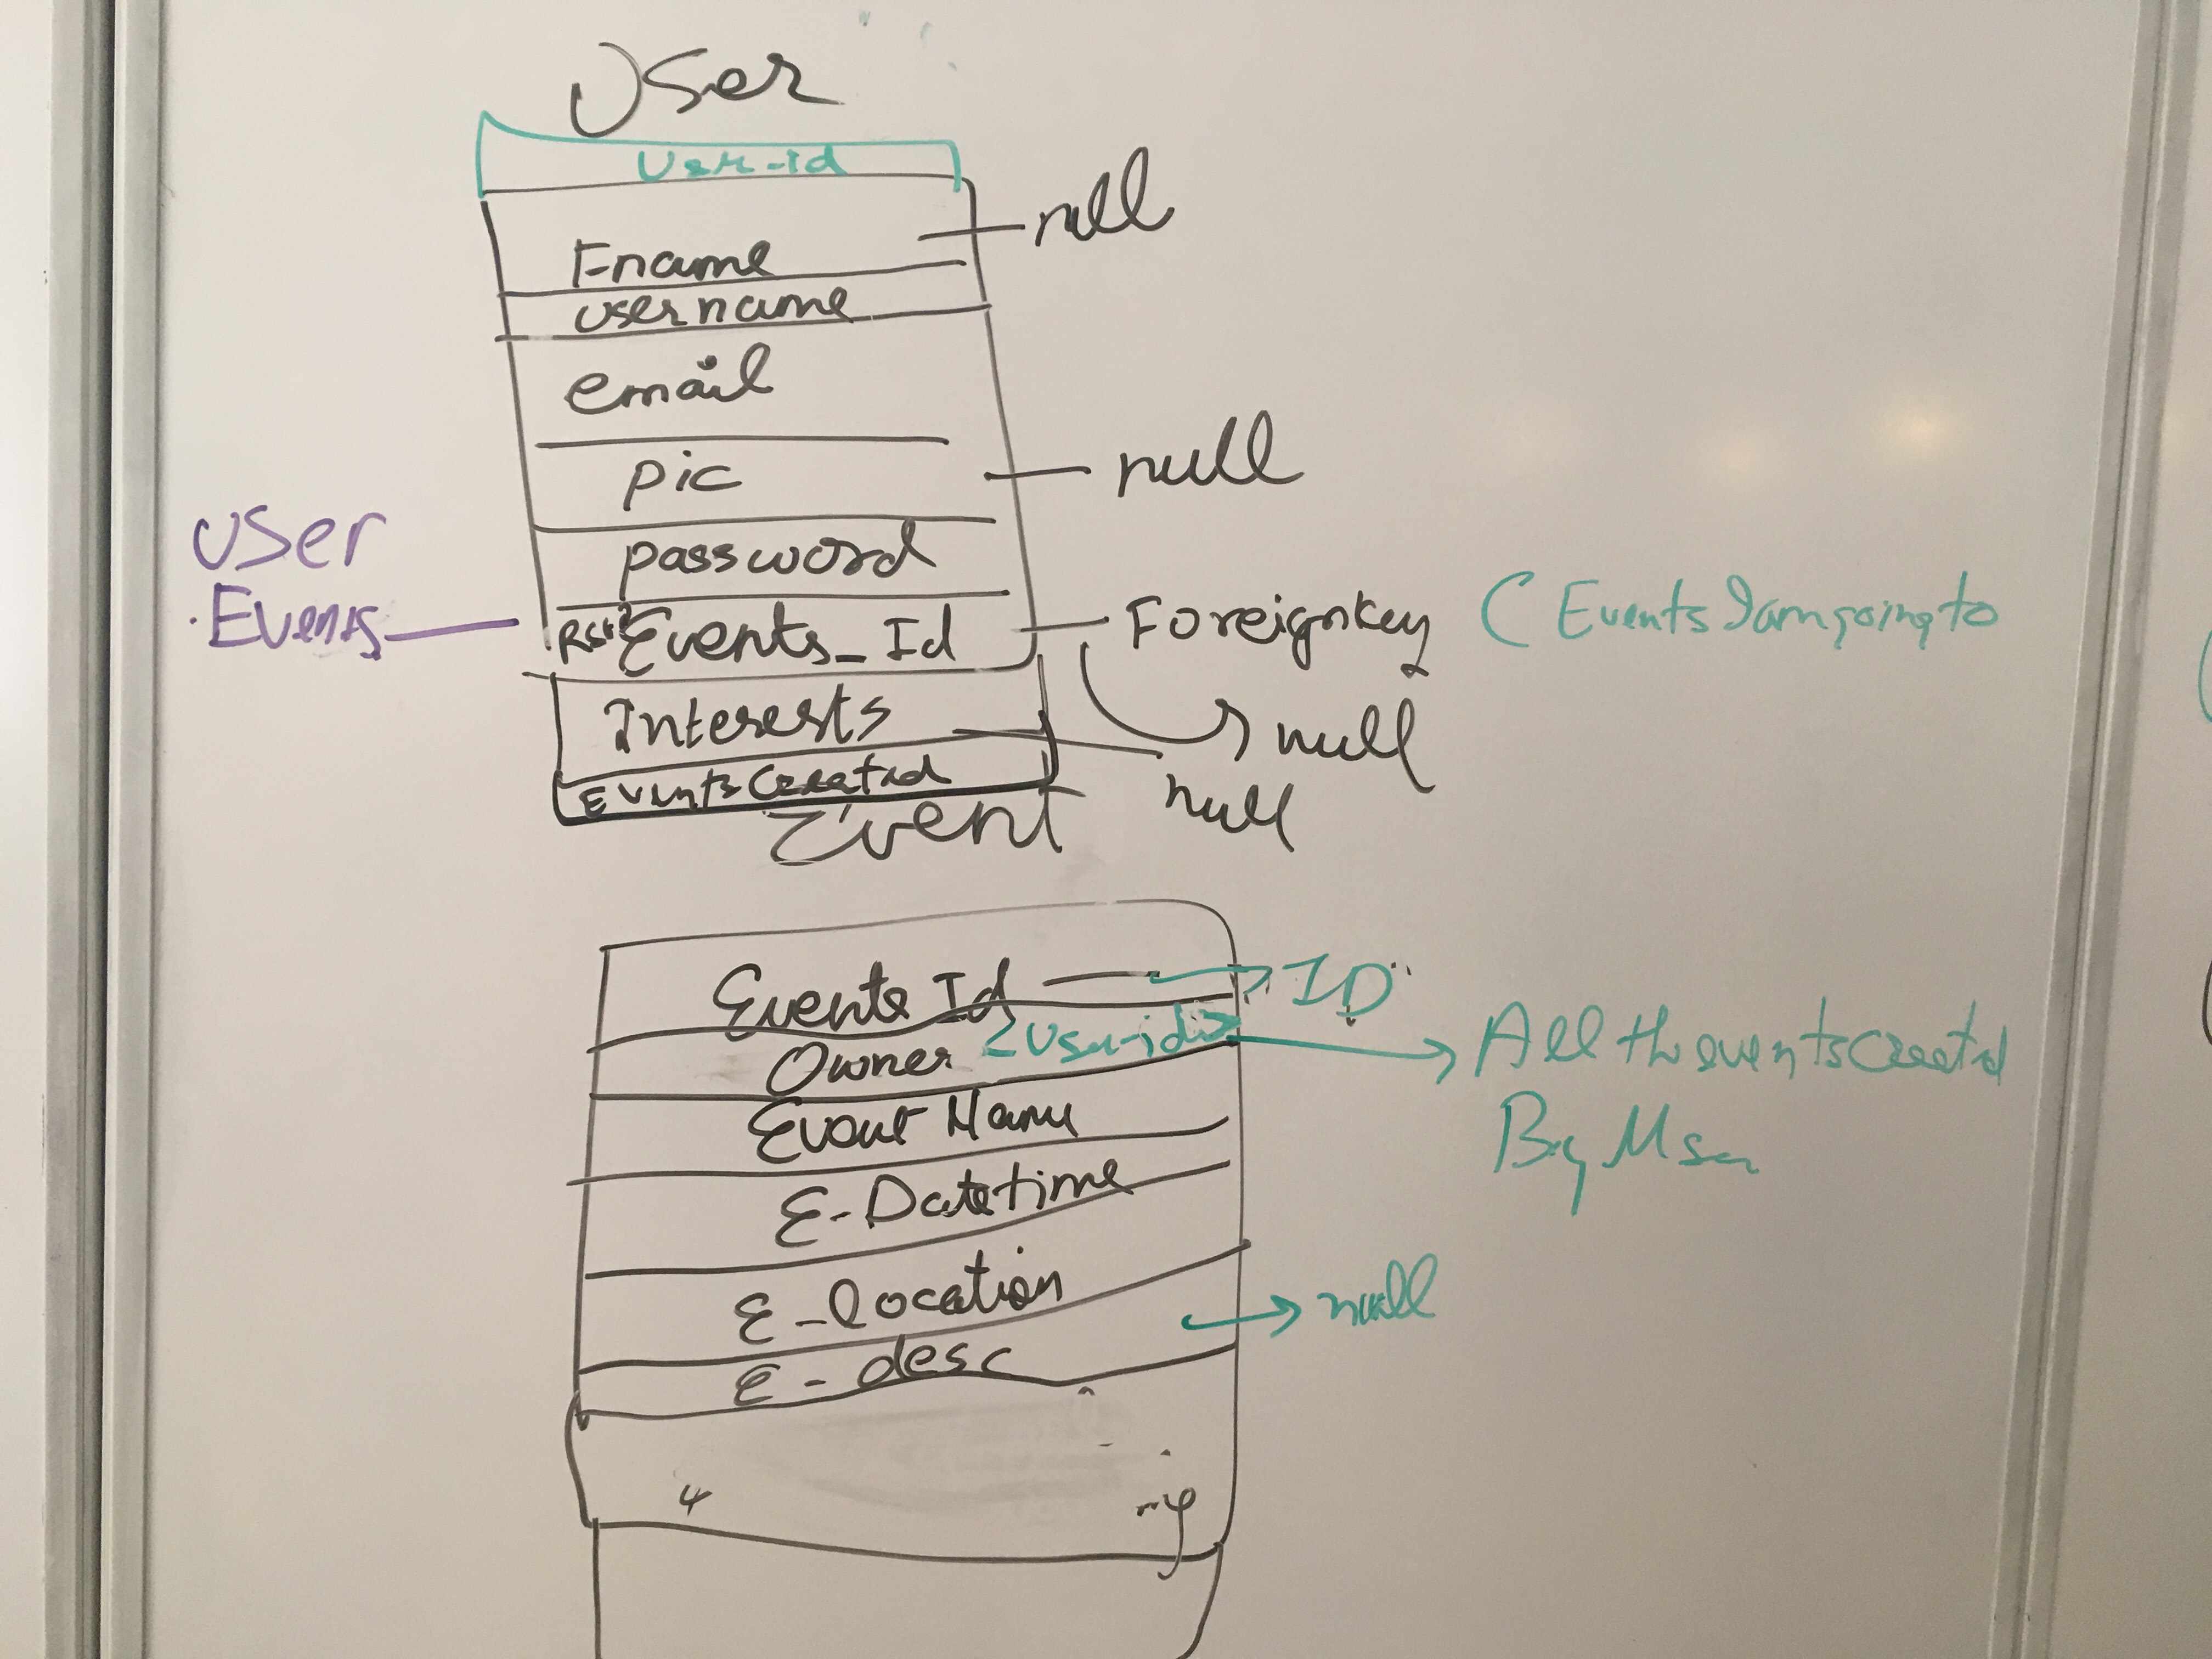 User
User-id
Fname
null
username
email
pic
null
password
User
Events
Events_Id
Foreignkey
( Events I am going to
null
Interests
null
Events Created
Event
Events Id
ID
Owner <User-id>
All the events created
By User
Event Name
E-Datetime
E-location
null
E-desc